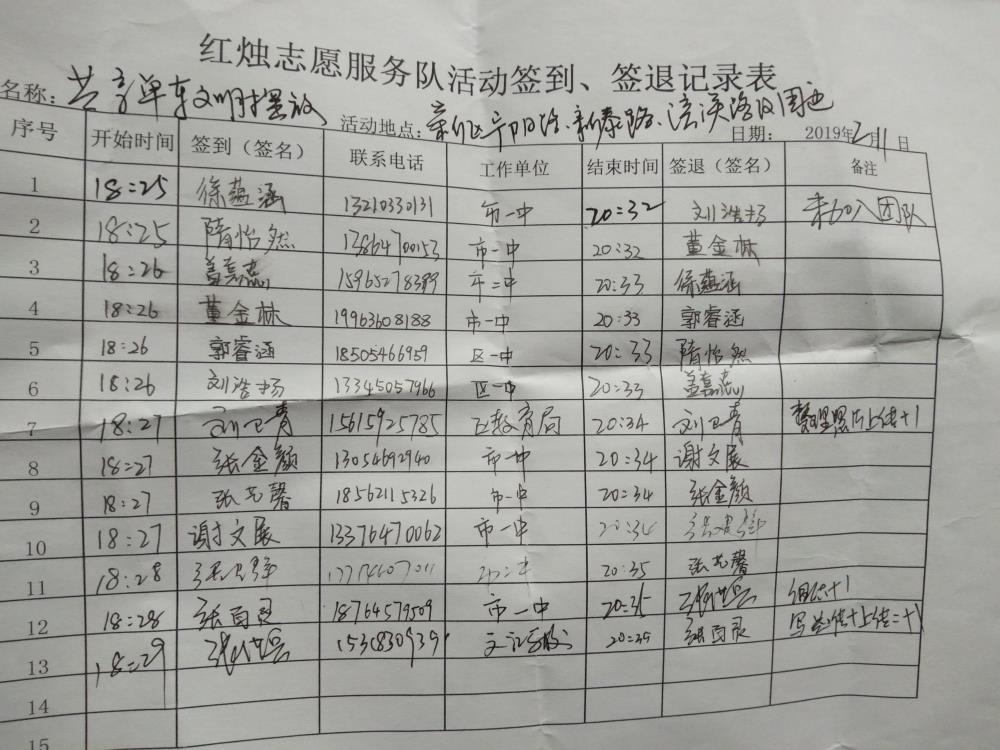 红烛志愿服务队活动签到、签退记录表
名称：共享单车文明摆放 活动地点： 新泰路、 路及周边 日期： 2019年2月11日
序号 开始时间 签到（签名） 联系电话 工作单位 结束时间 签退（签名） 备注
1 18:25 徐蕴涵 13210330131 市一中 20:32 刘浩杨 未加入团队
2 18:25 隋怡然 13864700153 市一中 20:32 董金林
3 18:26 盖嘉 市二中 20:33 徐蕴涵
4 18:26 董金林 19963608188 市一中 20:33 郭睿涵
5 18:26 郭睿涵 18505466959 区一中 20:33 隋怡然
6 18:26 刘浩杨 13345057966 区一中 20:33 盖嘉
7 18:27 刘卫青 15615925785 区教育局 20:34 刘卫青 整理照片上传+1
8 18:27 张金颜 13054692940 市一中 20:34 谢文展
9 18:27 张艺馨 18562115326 市一中 20:34 张金颜
10 18:27 谢文展 13376470062 市一中 20:34
11 18:28 20:35 张艺馨
12 18:28 张百灵 18764579509 市一中 20:35 组织+1
13 18:29 20:35 张百灵
14
15